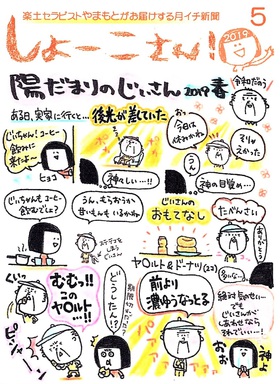 楽土セラピストやまもとがお届けする月イチ新聞
しょーこさん!
2019
5
陽だまりのじいさん 2019 春
令和だのう
ある日、実家に行くと…
後光が差していた
じいちゃん!コーヒー
飲みに
来たよ〜
ヒョコ
おっ
今日は
休みかね
うん
そりが
えかった
神々しい…!!
神の目覚め…
じいちゃんも コーヒー
飲むでしょ?
うん。もらおうか
甘いもんもいるかね
じいさんの
おもてなし
たべんさい
ありがとう
ヤクルト&ドーナツ(23)
むむっ!!
この
ヤクルト…!!
どうしたん!?
前より
濃ゆうなっとる
パァァ
じいさんが
しあわせなら
それでいい…!!
おぉ
神よ